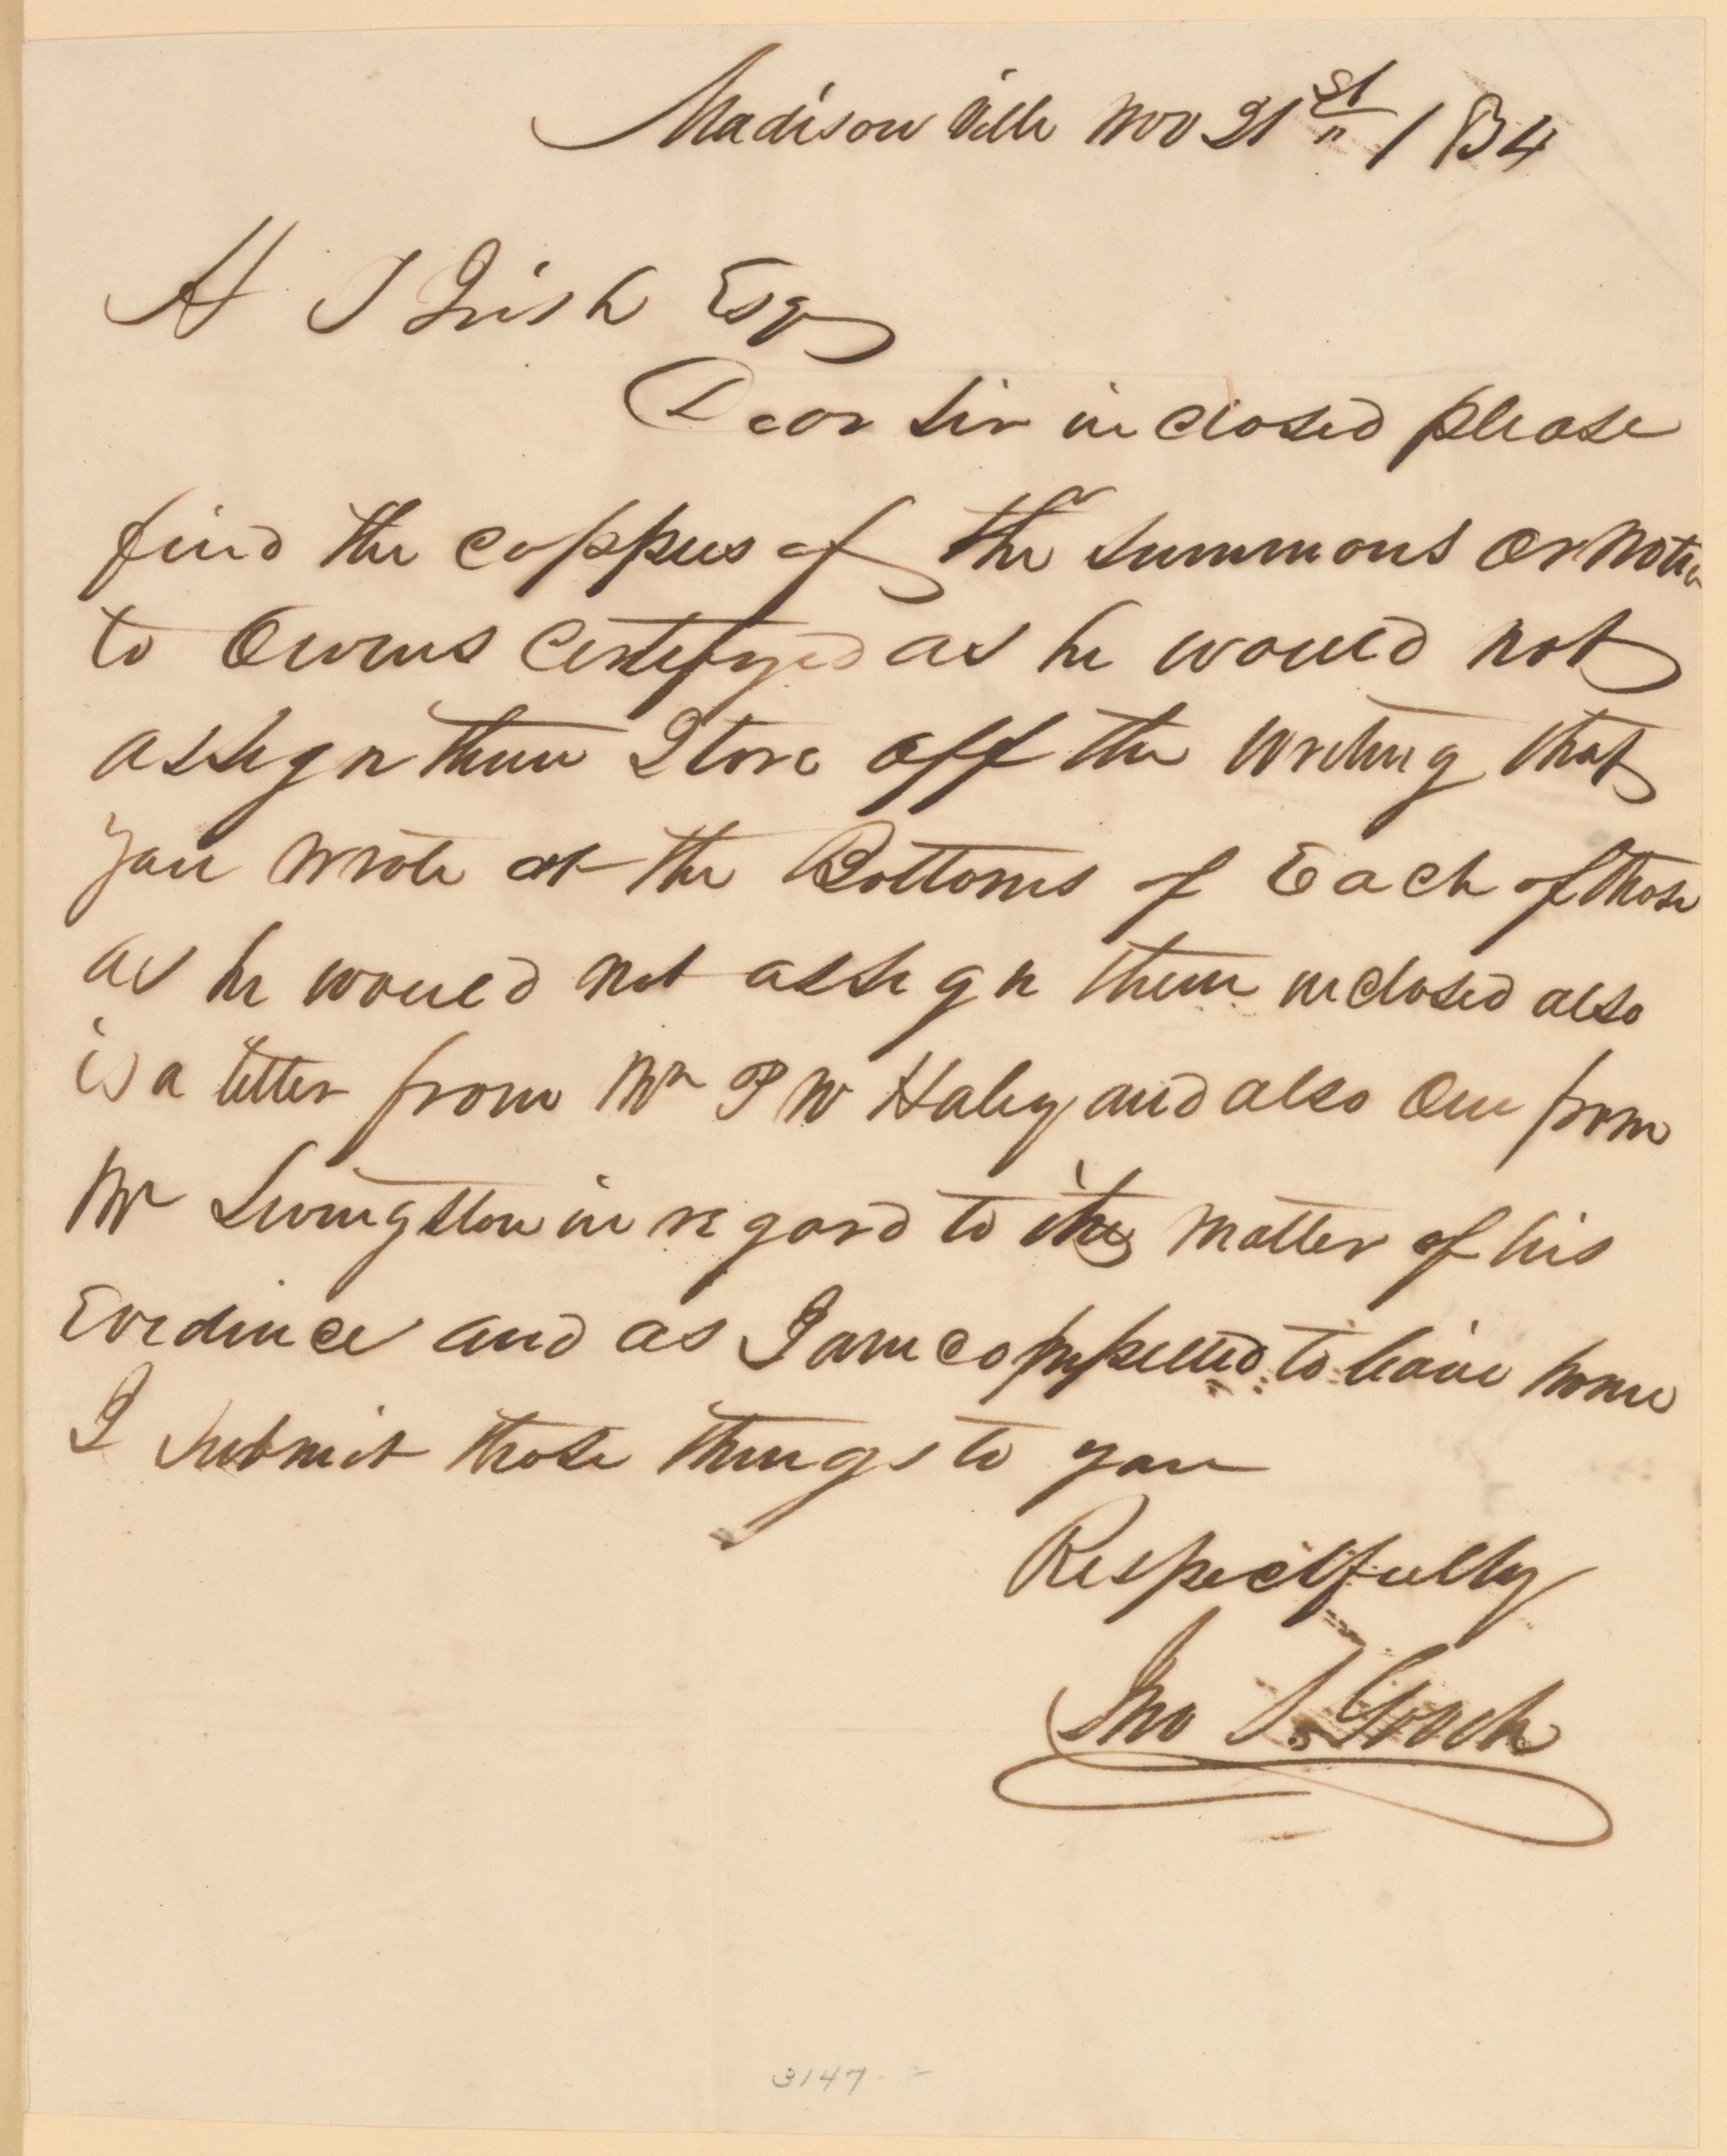 Madison Ville Nov 21st 1834
A J Irish Esq
Dear Sir inclosed please
find the coppies of the Summons or Notice
to Owens Certifyed as he would not
assign them I tore off the writing that
you wrote at the Bottoms of Each of those
as he would not assign them inclosed also
is a letter from Mr P W Haley and also One from
Mr Livingston in regard to the matter of his
Evidence and as I am compelled to leave home
I submit those things to you
Respectfully
Jno T. Gooch
3147